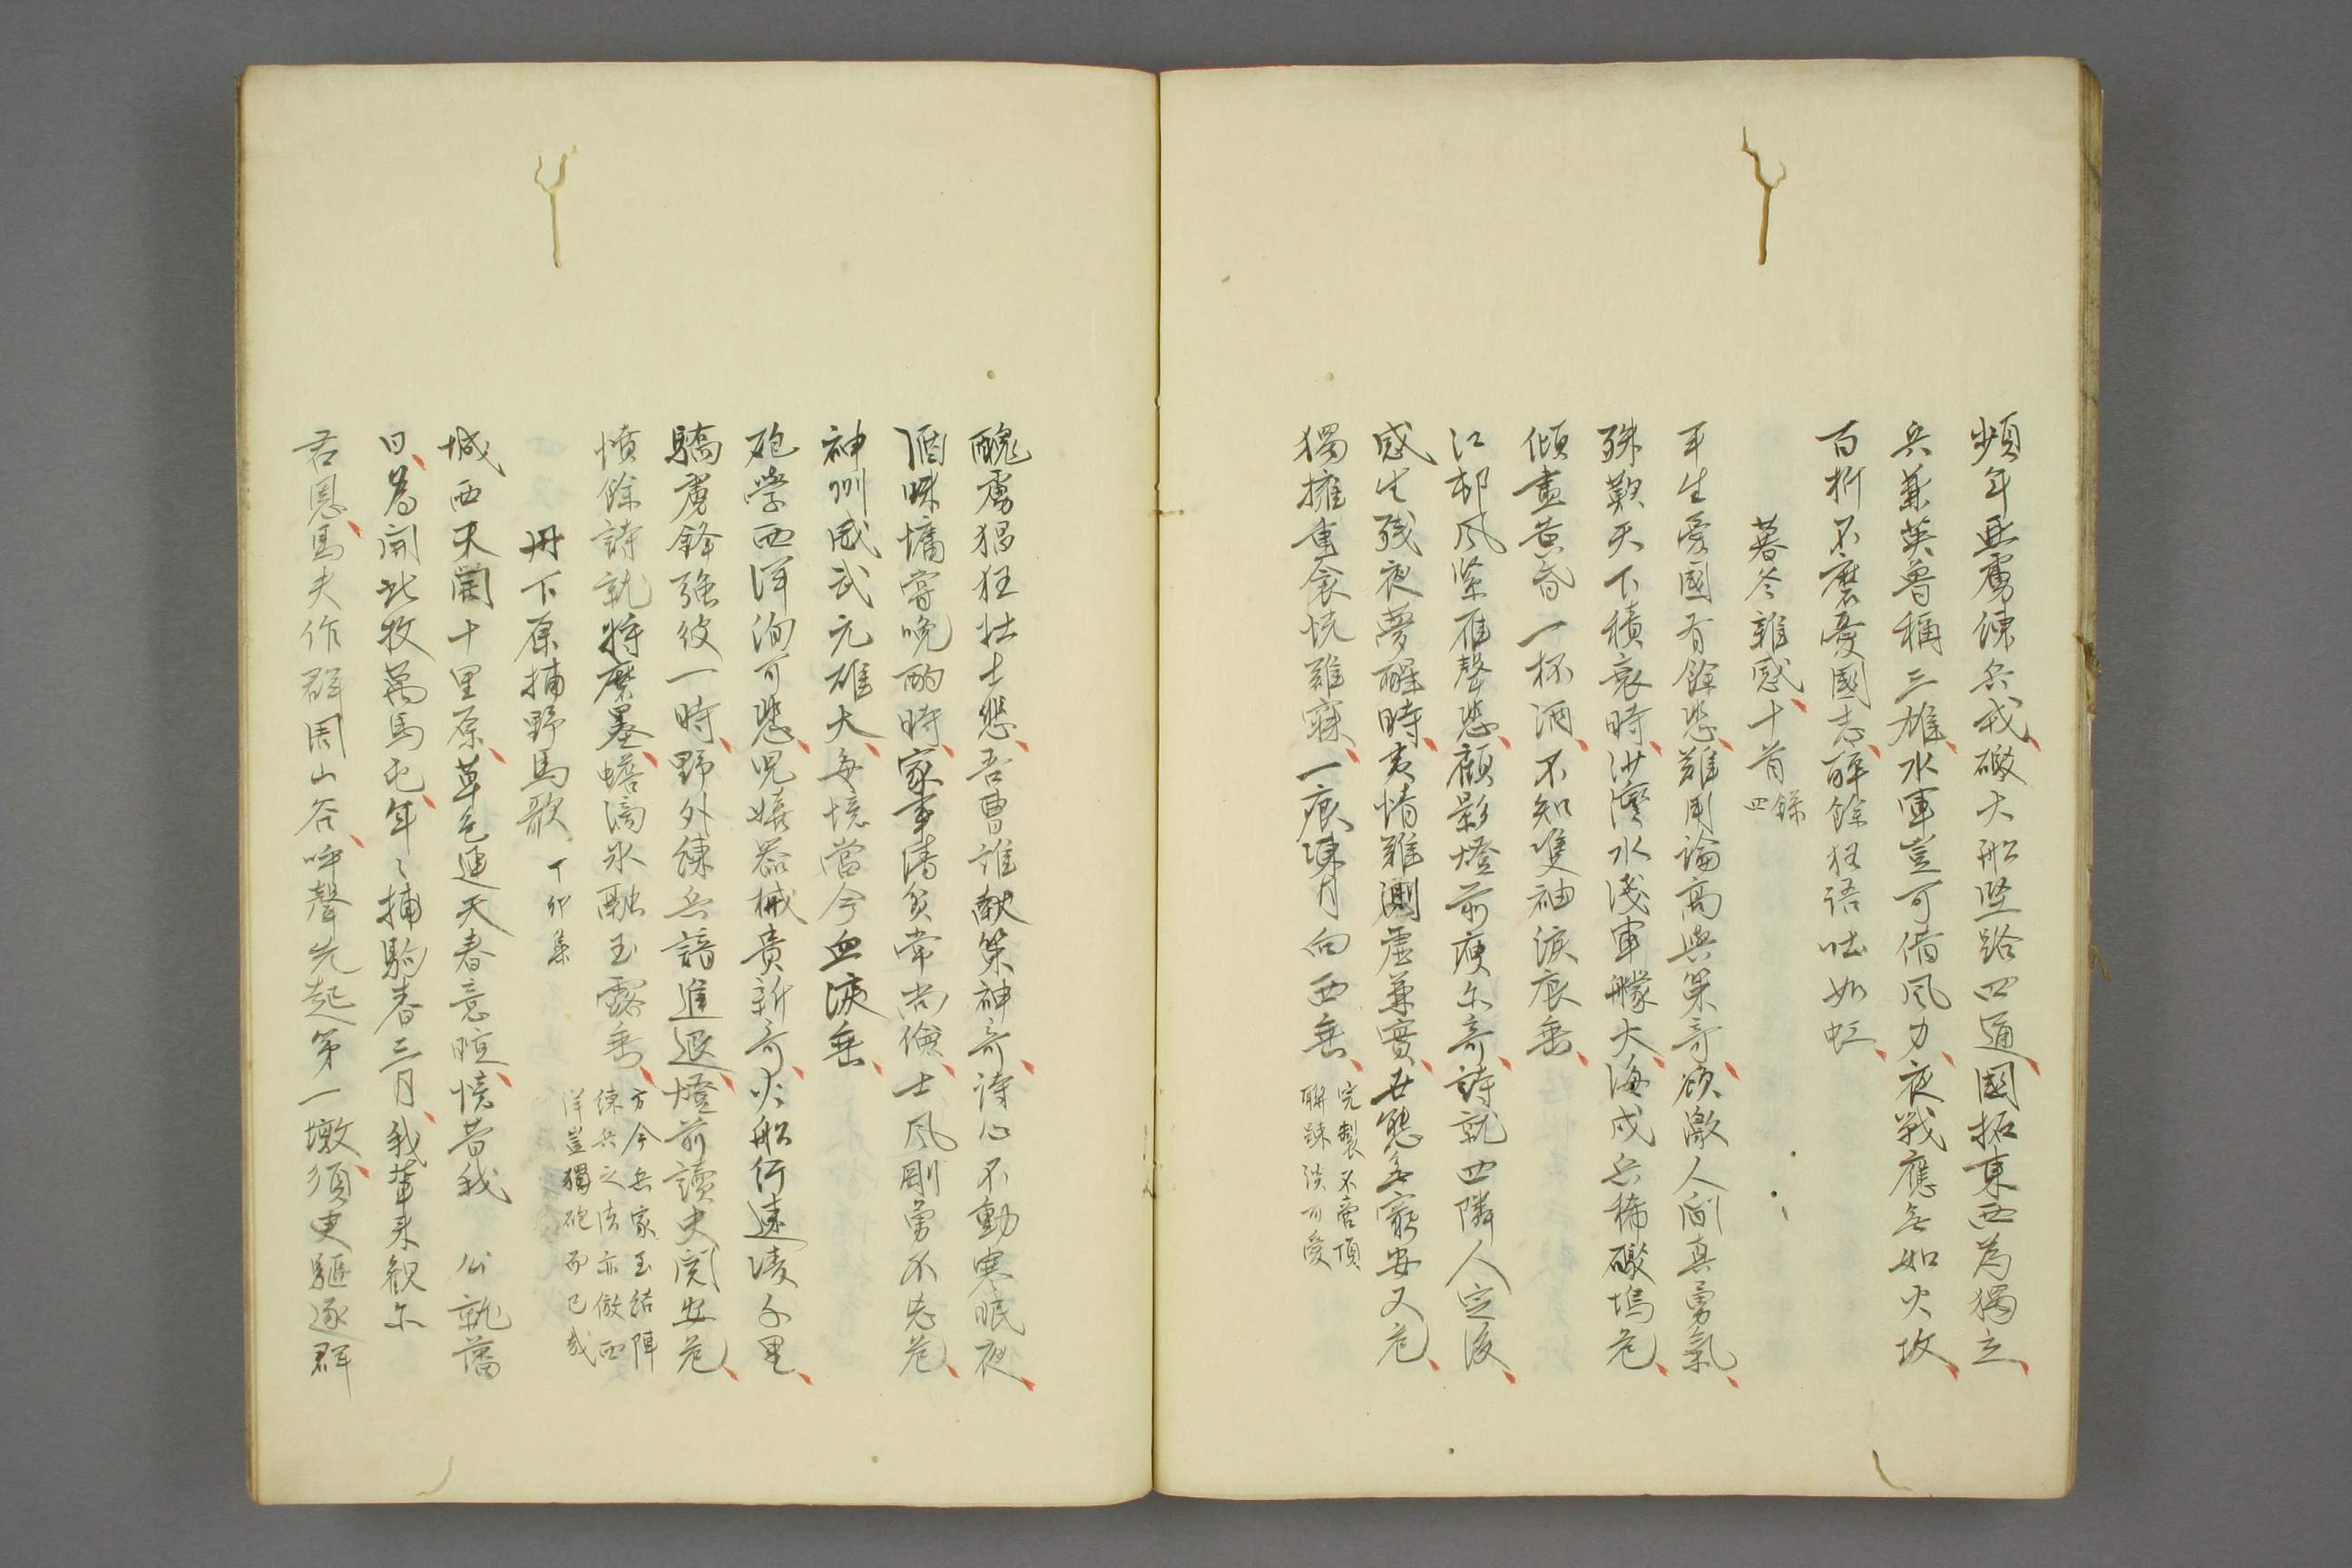 頻年亜虜練兵戎礮大船堅路四通國拓東西為獨立
兵兼英魯稱三雄水軍豈可借風力夜戰應無如火攻
百折不磨憂國志酔餘狂語吐如虹
暮冬雜感十首 錄四
平生憂國有餘悲難用論高與策奇欲激人間真勇氣
殊歎天下積衰時沙灣水淺軍艨大海戍兵稀礮塢危
傾盡黄昏一杯酒不知雙袖淚痕垂
江邨風緊雁聲悲顧影燈前瘦尓奇詩就四隣人定後
感生殘夜夢醒時夷情難測虛兼實世態無窮安又危
獨擁重衾恍難寐一痕凍月向西垂 完製不啻項
聯疎淡可愛
醜虜猖狂壮士悲吾曹誰献策神奇詩心不動寒眠夜
酒味慵嘗晩酌時家事清貧常尚儉士風剛勇不忘危
神州威武元雄大每憶當今血淚垂
砲學西洋洵可悲児嬉器械貴新奇火船行速凌千里
驕虜鋒強俊一時野外練兵諳進退燈前讀史関安危
憤餘詩就将磨墨蟾滴氷融玉露垂 方今兵家至結陣
練兵之法亦倣西
洋豈獨砲而已哉
丹下原捕野馬歌 丁卯集
城西天開十里原草色連天春意暄憶昔我 公就藩
日為開此牧萬馬屯年々捕駒春三月我輩来観尓
君恩馬夫作群周山谷呼聲先起第一墩須臾驅逐群